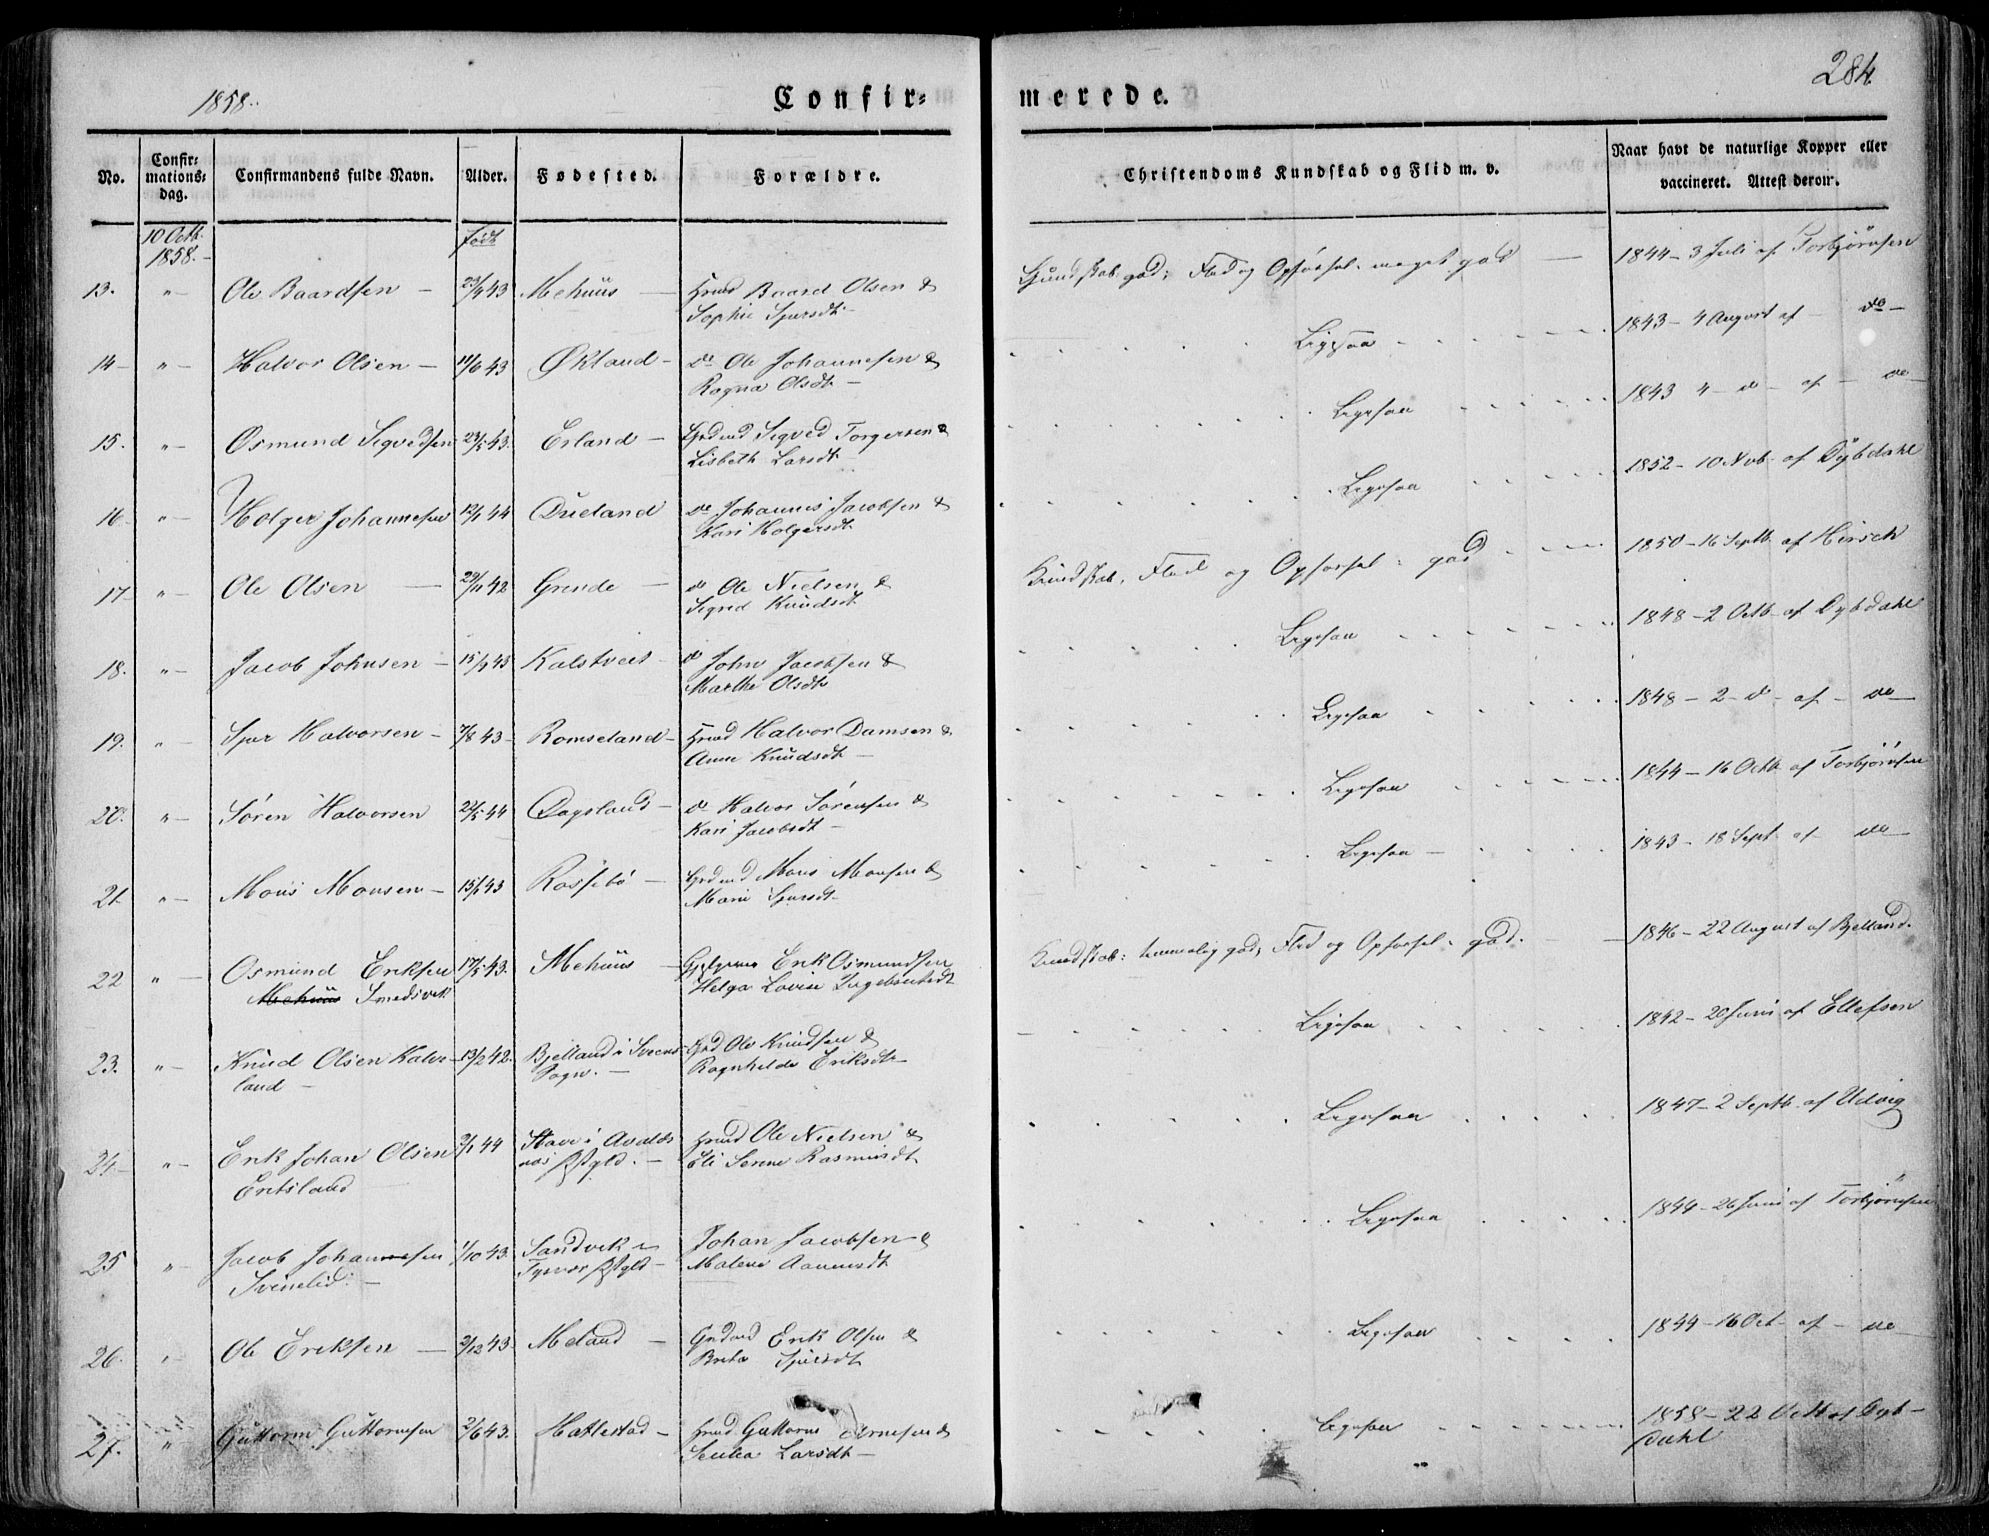 1858.
Confir=
merede.
284.
No.
Confir=
mations=
dag.
Confirmandens fulde Navn.
Alder.
Fødested.
Forældre.
Christendoms Kundskab og Flid m. v.
Naar havt de naturlige Kopper eller
vaccineret. Attest derom.
10 Octb.
1858.
født
13. " Ole Baardsen — 23/4 43 Mehuus — Hmd Baard Olsen & Kundskab god; Flid og Opførsel meget god — 1844 – 3 Juli af Torbjørnsen
Sophie Sjursdt.
14 – " Halvor Olsen — 11/6 43 Økland – do Ole Johannesen & Ligesaa 1843 – 4 August af – do –
Ragna Olsdt. –
15. " Osmund Sigvedsen 23/5 43. Erland – Grdmd Sigved Torgersen & Ligesaa 1843 4 – d – af – do –
Lisbeth Larsdt.
16 " Holger Johannesen 12/1 44 Dueland do Johannes Jacobsen & Ligesaa 1852 – 10 Nvb. af Dybdahl
Kari Holgersdt.
17 " Ole Olsen — 29/11 42 Grinde — do Ole Nielsen & Kundskab, Flid og Opførsel: god 1850 – 16 Septb. af Hirsch
Sigrid Knudsdt
18. " Jacob Johnsen – 15/9 43 Kalstveit – do John Jacobsen & Ligesaa 1848 – 2 Octb. af Dybdahl
Marthe Olsdt.
19. " Sjur Halvorsen – 7/8 43 – Romseland – Hmd Halvor Damsen & Ligesaa 1848 – 2 – d – af – do –
Anne Knudsdt. –
20. " Søren Halvorsen 24/5 44 Dagsland – do Halvor Sørensen & Ligesaa 1844 – 16 Octb. af Torbjørnsen
Kari Jacobsdt –
21. " Mons Monsen – 15/1 43 Rossebø – Grdmd Mons Monsen & Ligesaa – 1843 – 18 Sept. af – do –
Mari Sjursdt.
22 " Osmund Eriksen 17/5 43. Mehuus – Erik Osmundsen Kundskab: temmelig god, Flid og Opførsel: god. — 1846 – 22 August af Bjelland.
Mehuus Smedsvik Helga Lovise
23. " Knud Olsen Kalve- 13/2 42. Bjelland i Sveens Grd Ole Knudsen & Ligesaa 1842 – 20 Juni af Ellefsen
land – Sogn. – Ragnhilde Eriksdt. –
24 – " Erik Johan Olsen 3/1 44 Stave i Avalds Hmd Ole Nielsen & Ligesaa 1847 – 2 Septb. af Udvig
Eritsland næs Pstgld. – Eli Serine Rasmusdt.
25 " Jacob Johannesen 1/10 43. Sandvik i Johan Jacobsen & Ligesaa 1844 – 26 Juni af Torbjørnsen
Svinelid. – Tysvær Pstgld – Malene
26. " Ole Eriksen — 2/12 43. Meland – Grdmd Erik Olsen & Ligesaa 1844 – 16 Oct. af – do –
Brita Sjursdt.
27. " Guttorm Guttormsen 2/6 43. Hatlestad – Hmd Guttorm & Ligesaa 1858 – 22 Octb. af Dyb-
Larsdt – dahl